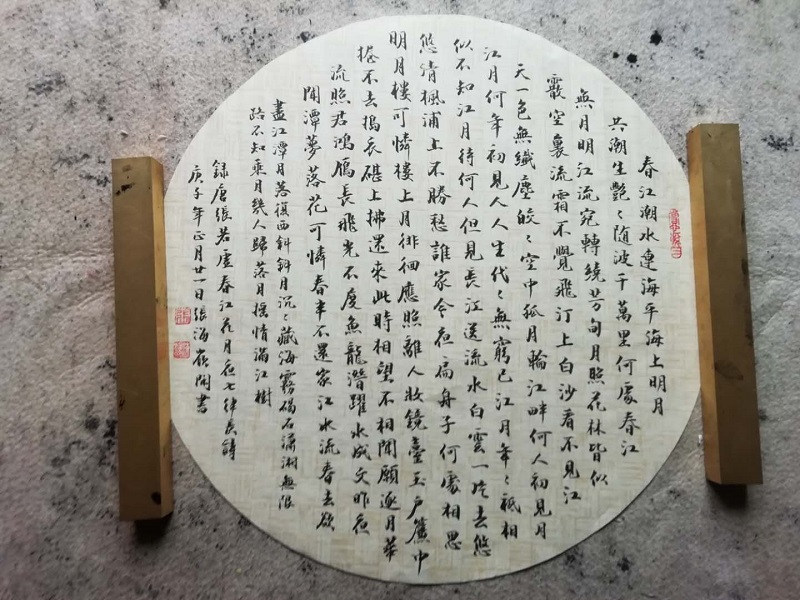 春江潮水連海平海上明月
共潮生艷〻随波千萬里何處春江
無月明江流宛轉繞芳甸月照花林皆似
霰空裏流霜不覺飛汀上白沙看不見江
天一色無纖塵皎〻空中孤月輪江畔何人初見月
江月何年初見人人生代〻無窮已江月年〻祗相
似不知江月待何人但見長江送流水白雲一片去悠
悠清楓浦上不勝愁誰家今夜扁舟子何處相思
明月樓可憐樓上月徘徊應照離人妝鏡臺玉户簾中
捲不去搗衣砧上拂還來此時相望不相聞願逐月華
流照君鴻雁長飛光不度魚龍潛躍水成文昨夜
閒潭夢落花可憐春半不還家江水流春去欲
盡江潭月落復西斜斜月沉〻藏海霧碣石瀟湘無限
路不知乘月幾人歸落月摇情滿江樹
録唐張若虚春江花月夜七律長詩
庚子年正月廿一日張海嶺閒書